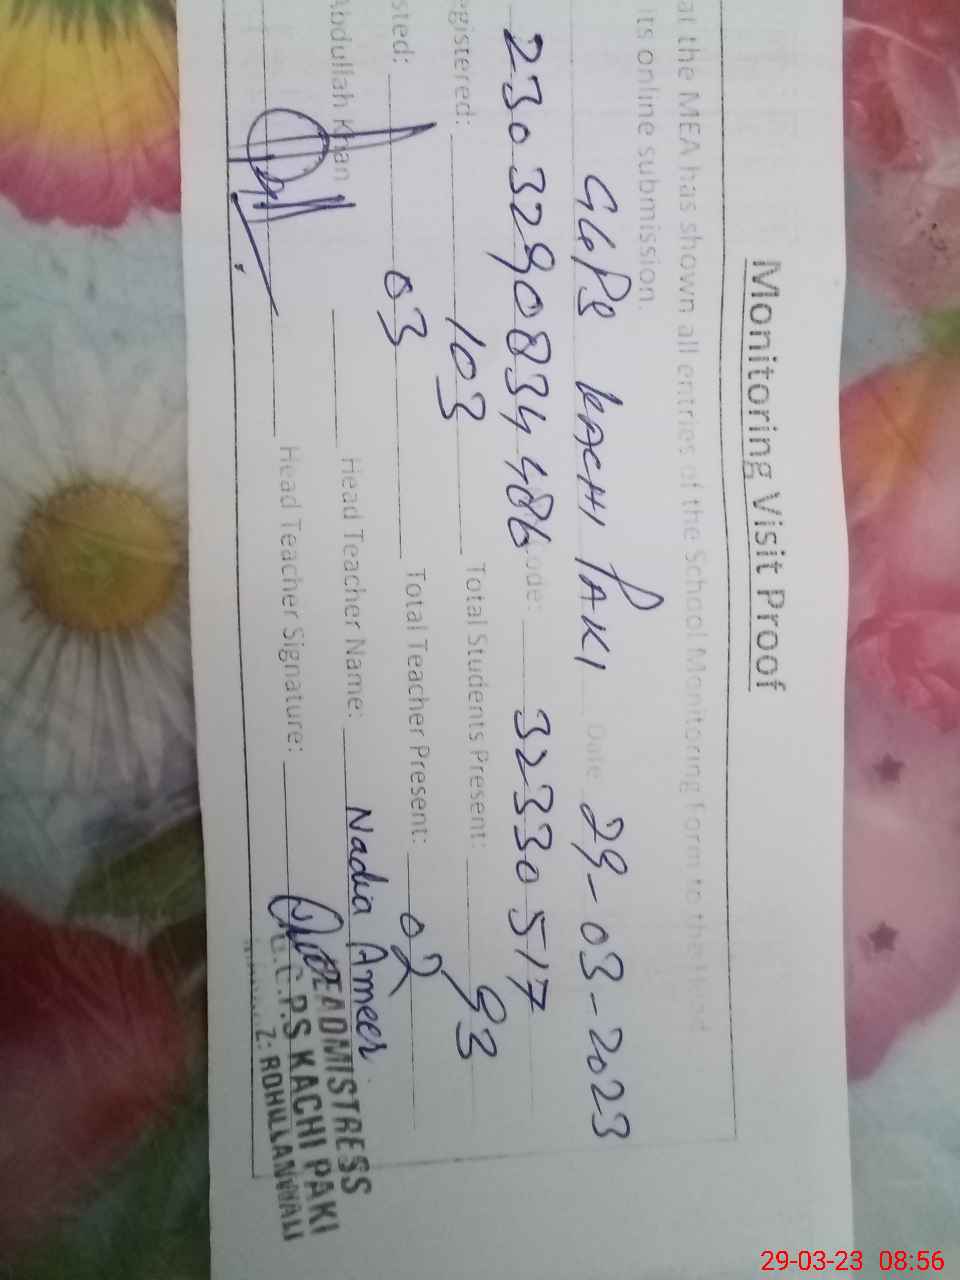 Monitoring Visit Proof
at the MEA has shown all entries of the School Monitoring form to the Head
its online submission.
GGPS KACHI PAKI Date 29-03-2023
2303290834486 ode: 32330517
egistered: 103 Total Students Present: 93
sted: 03 Total Teacher Present: 02
Abdullah Khan Head Teacher Name: Nadia Ameer
Head Teacher Signature:
HEADMISTRESS
G.G.P.S KACHI PAKI
Z: ROHILLANWALI
29-03-23 08:56